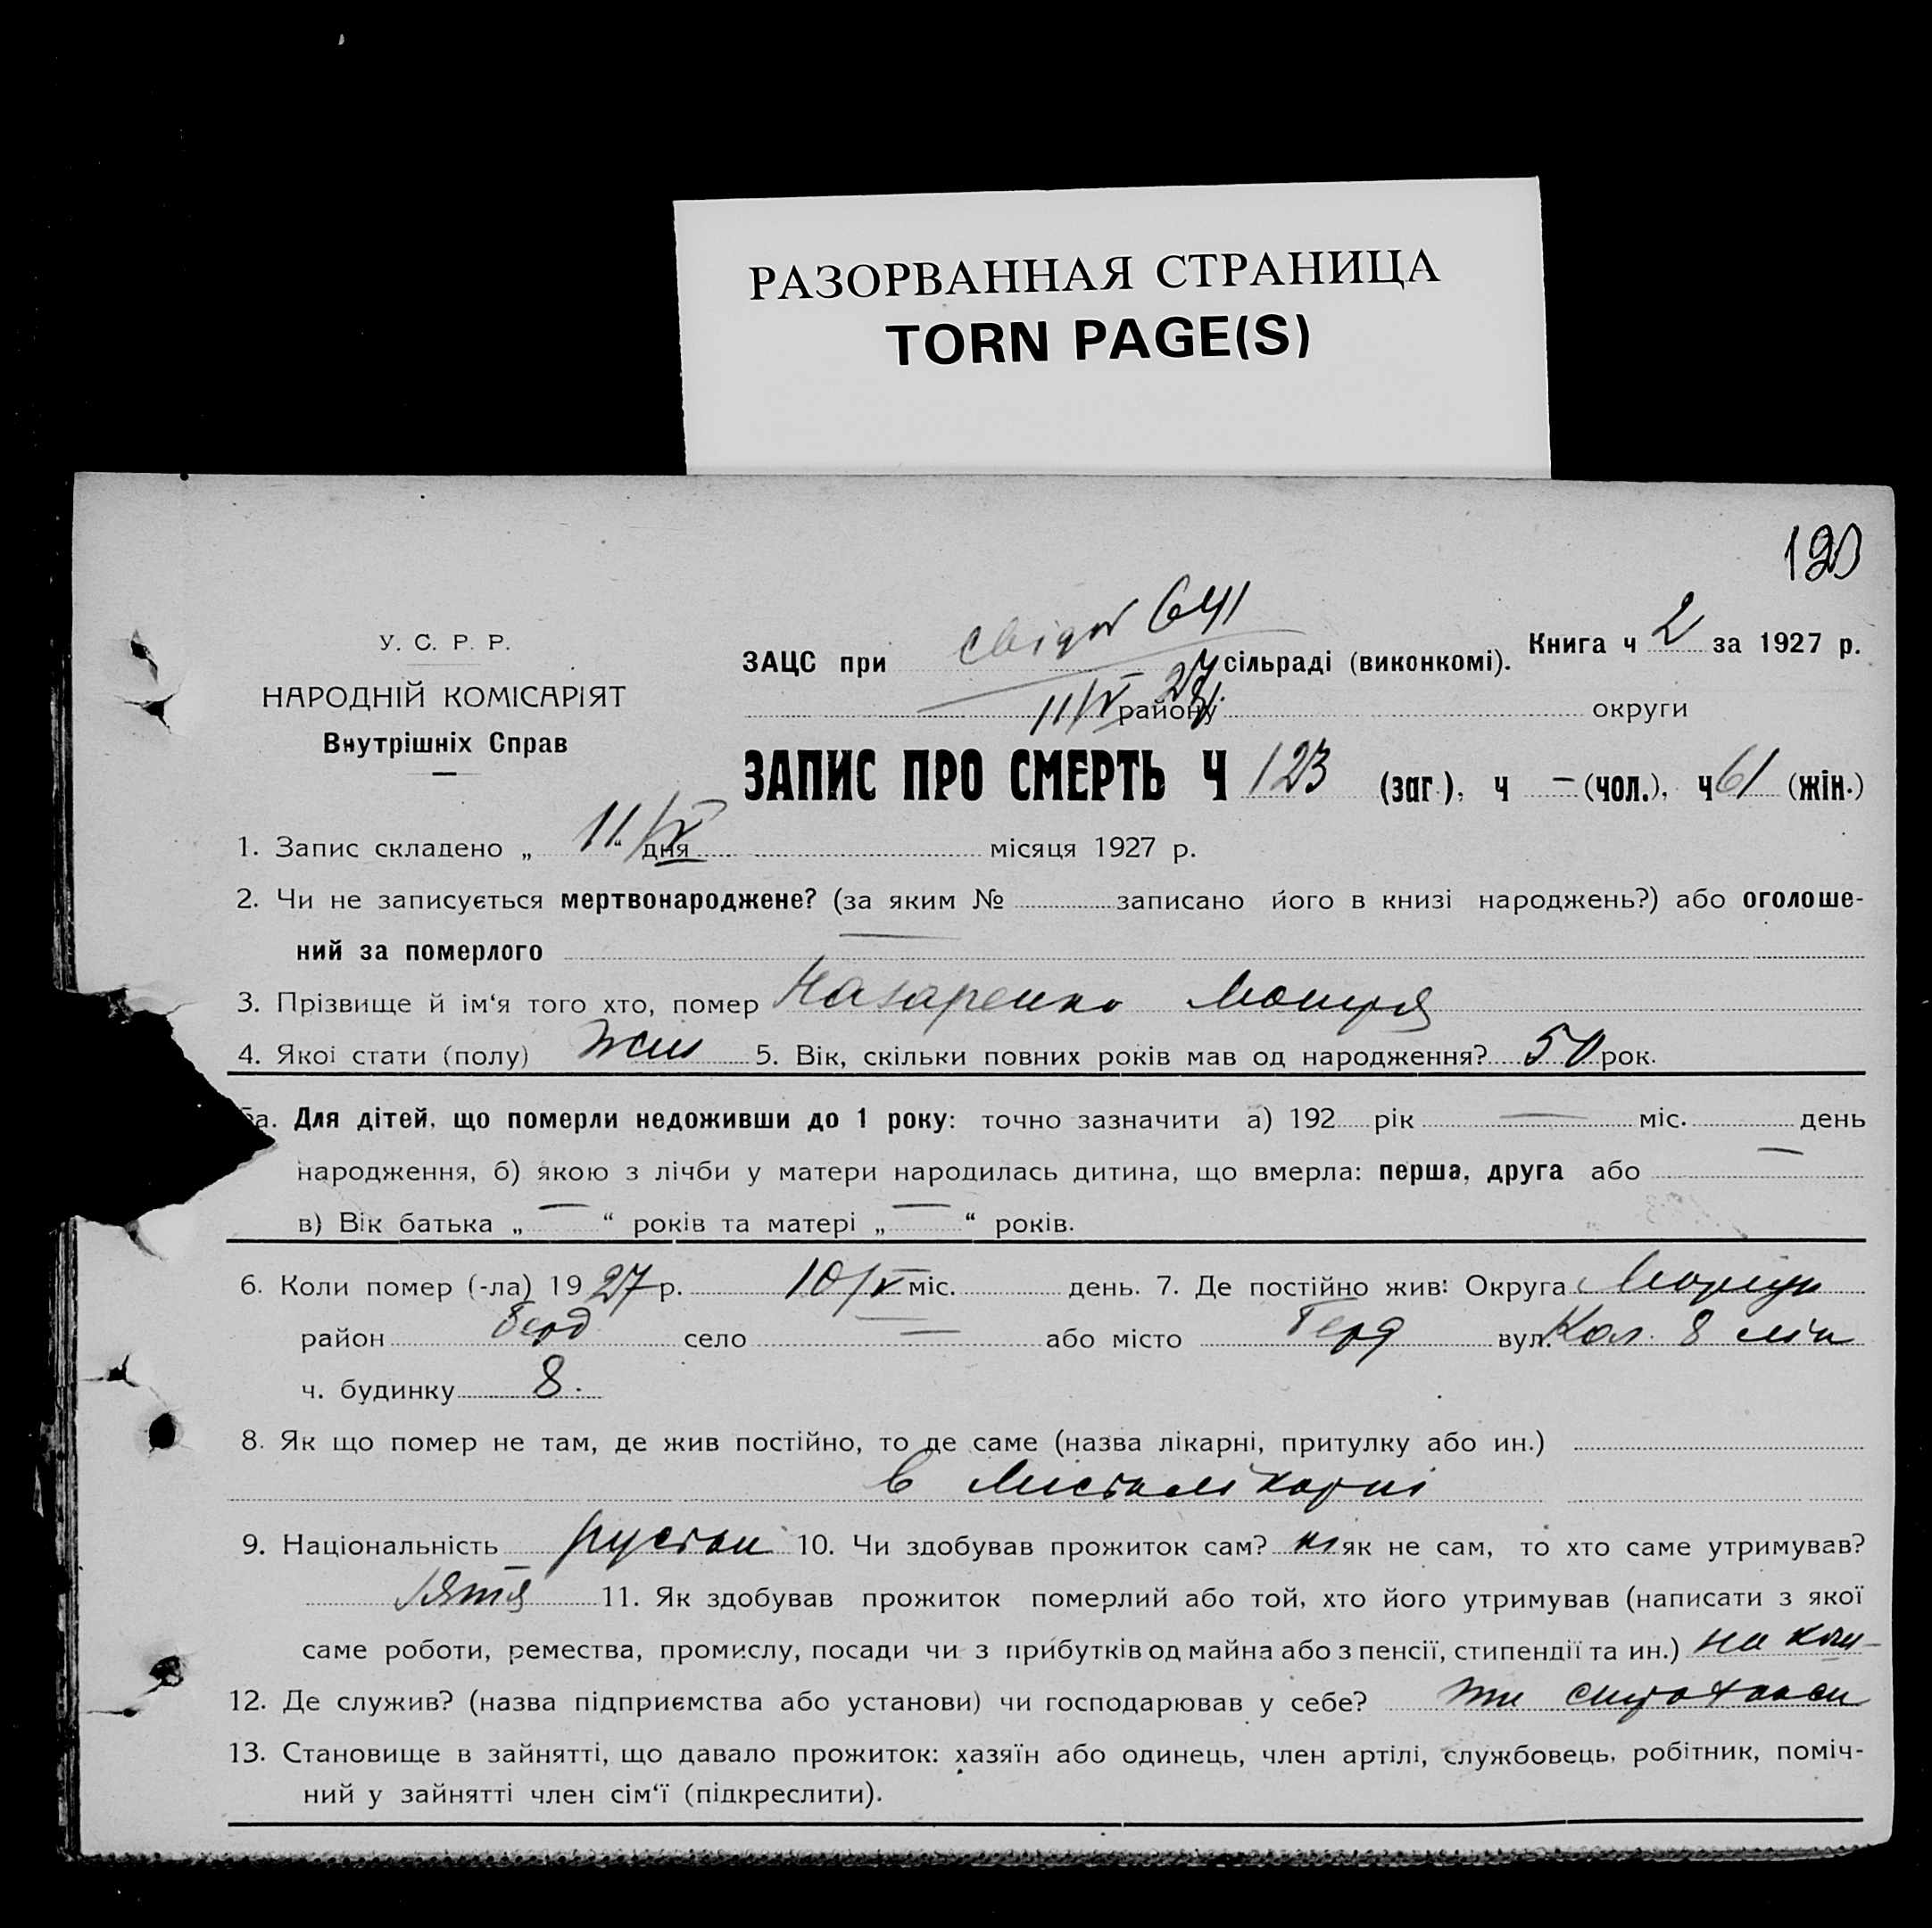 РАЗОРВАННАЯ СТРАНИЦА
TORN PAGE(S)
123
У. С. Р. Р.
НАРОДНІЙ КОМІСАРІЯТ
Внутрішніх Справ
ЗАЦС при свідоц 641 сільраді (виконкомі). Книга ч 2 за 1927 р.
11/V 27 району округи
ЗАПИС ПРО СМЕРТЬ Ч 123 (заг.), ч — (чол.), ч 61 (жін.)
1. Запис складено „ 11/V “ дня місяця 1927 р.
2. Чи не записується мертвонароджене? (за яким № записано його в книзі народжень?) або оголоше-
ний за померлого —
3. Прізвище й ім‘я того хто, помер Назаренко Мотря
4. Якої стати (полу) жін 5. Вік, скільки повних років мав од народження? 50 рок.
5а. Для дітей, що померли недоживши до 1 року: точно зазначити а) 192 рік — міс. день
народження, б) якою з лічби у матери народилась дитина, що вмерла: перша, друга або —
в) Вік батька „ — “ років та матері „ — “ років.
6. Коли помер (-ла) 1927 р. 10/V міс. день. 7. Де постійно жив: Округа Маріуп
район Берд село — або місто Берд вул. Кол. 8 лін
ч. будинку 8.
8. Як що помер не там, де жив постійно, то де саме (назва лікарні, притулку або ин.)
в Місталікарні
9. Національність 10. Чи здобував прожиток сам? ні як не сам, то хто саме утримував?
зятя 11. Як здобував прожиток померлий або той, хто його утримував (написати з якої
саме роботи, ремества, промислу, посади чи з прибутків од майна або з пенсії, стипендії та ин.) на кош-
12. Де служив? (назва підприємства або установи) чи господарював у себе? ти страхкаси
13. Становище в зайнятті, що давало прожиток: хазяїн або одинець, член артілі, службовець, робітник, поміч-
ний у зайнятті член сім‘ї (підкреслити).